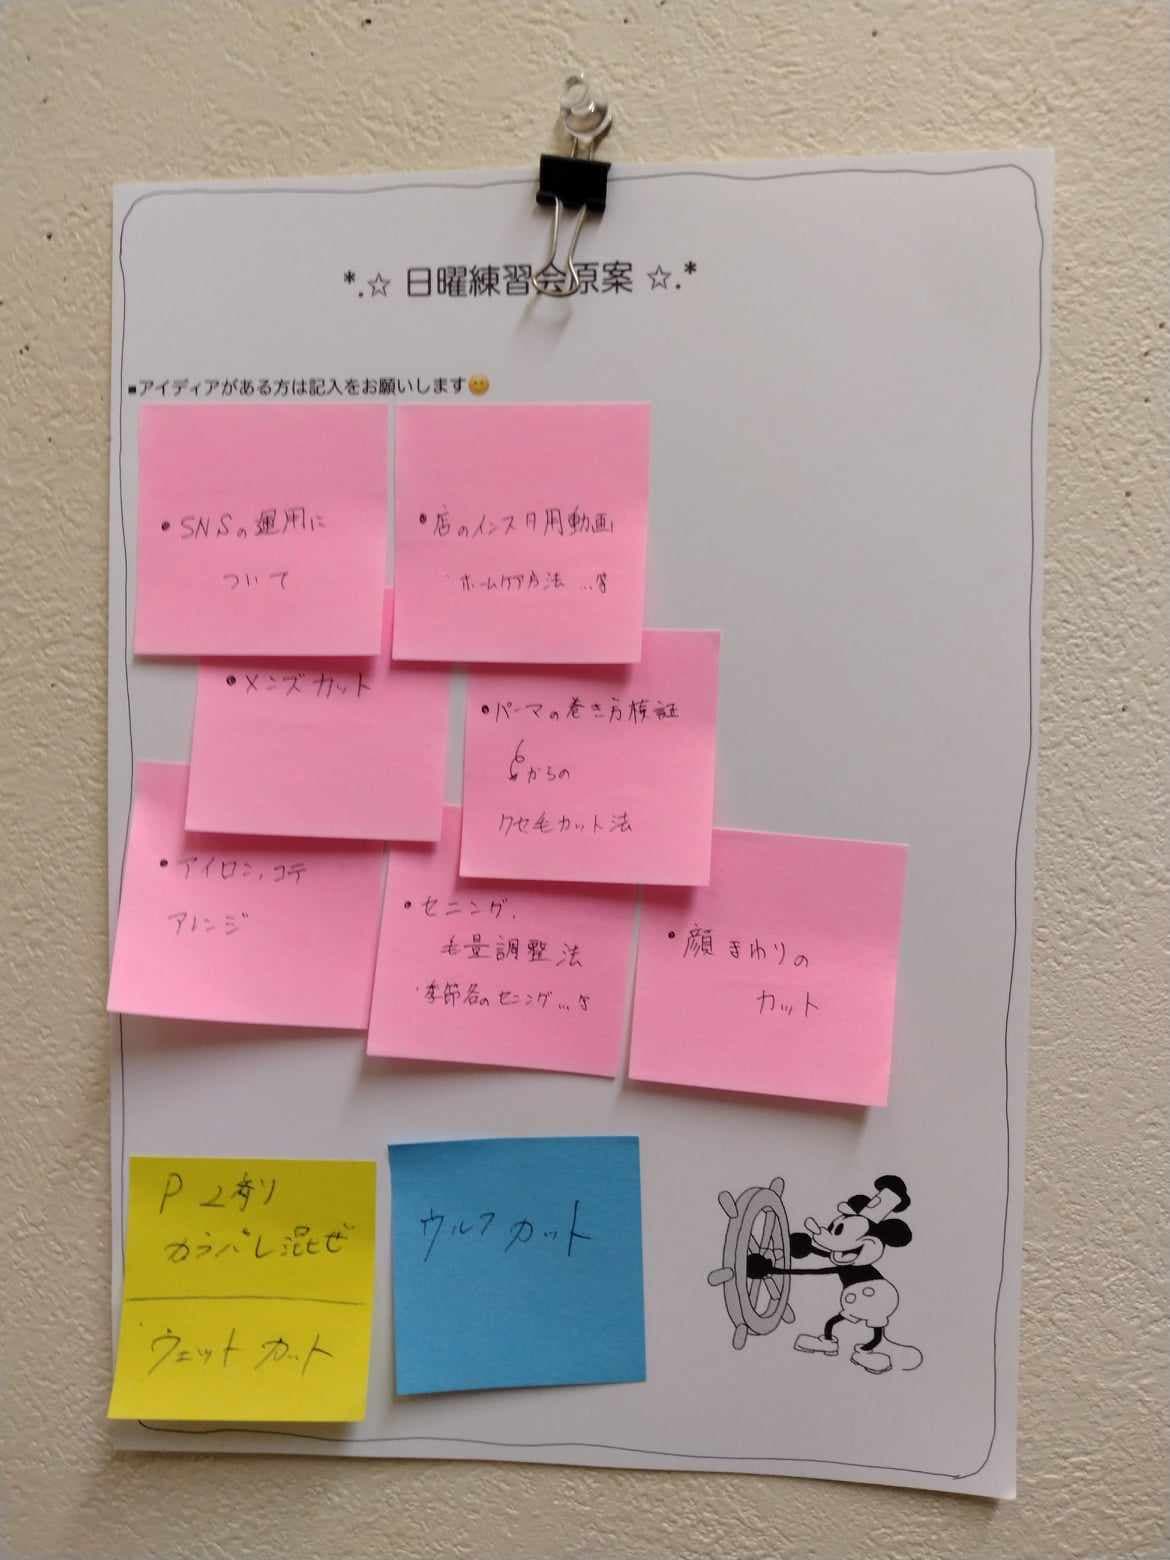 *.☆ 日曜練習会原案 ☆.*
■アイディアがある方は記入をお願いします😊
•SNSの運用に
ついて
•店のインスタ用動画
ホームケア方法...等
•メンズカット
•パーマの巻き方検証
からの
クセ毛カット法
•アイロン,コテ
アレンジ
•セニング,
毛量調整法
季節各のセニング...等
•顔まわりの
カット
P 2剤
カラバレ混ぜ
ウェットカット
ウルフカット